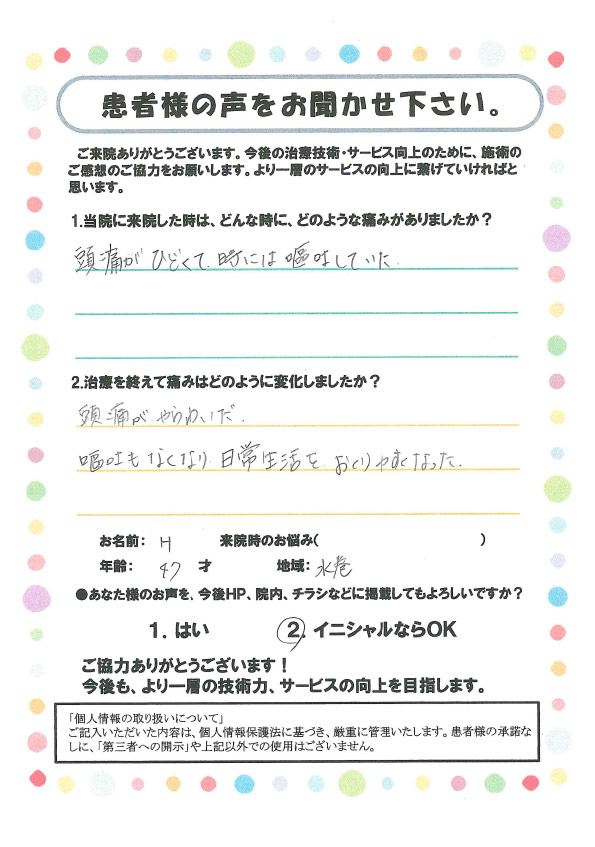 患者様の声をお聞かせ下さい。
ご来院ありがとうございます。今後の治療技術・サービス向上のために、施術の
ご感想のご協力をお願いします。より一層のサービスの向上に繋げていければと
思います。
1.当院に来院した時は、どんな時に、どのような痛みがありましたか？
頭痛がひどくて、時には嘔吐していた.
2.治療を終えて痛みはどのように変化しましたか？
頭痛がやわらいだ.
嘔吐もなくなり、日常生活を、おくりやすくなった.
お名前： H 来院時のお悩み( )
年齢： 47 才 地域： 水巻
●あなた様のお声を、今後HP、院内、チラシなどに掲載してもよろしいですか？
1. はい 2. イニシャルならOK
ご協力ありがとうございます！
今後も、より一層の技術力、サービスの向上を目指します。
「個人情報の取り扱いについて」
ご記入いただいた内容は、個人情報保護法に基づき、厳重に管理いたします。患者様の承諾な
しに、「第三者への開示」や上記以外での使用はございません。